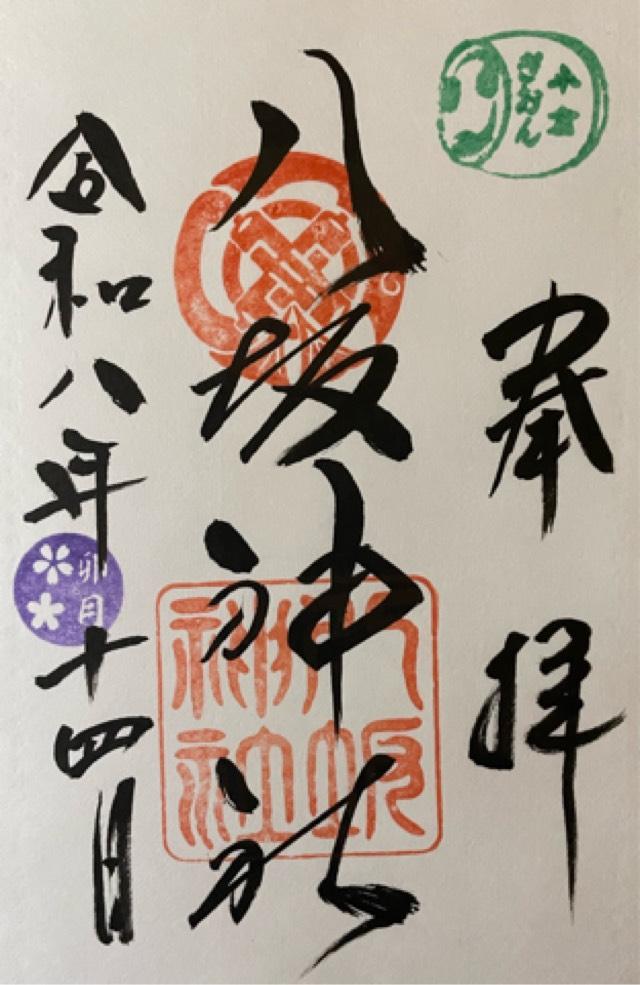 小倉
ぎおん
奉拝
八坂神社
八坂
神社
令和八年
卯月
十四日